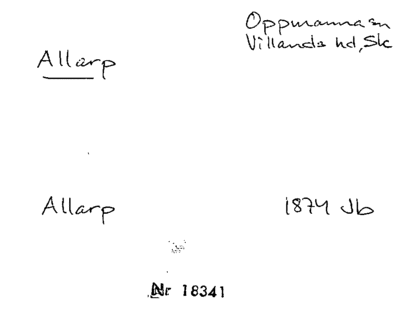 Oppmanna sn
Villands hd, Sk
Allarp
Allarp 1874 Jb
Nr 18341